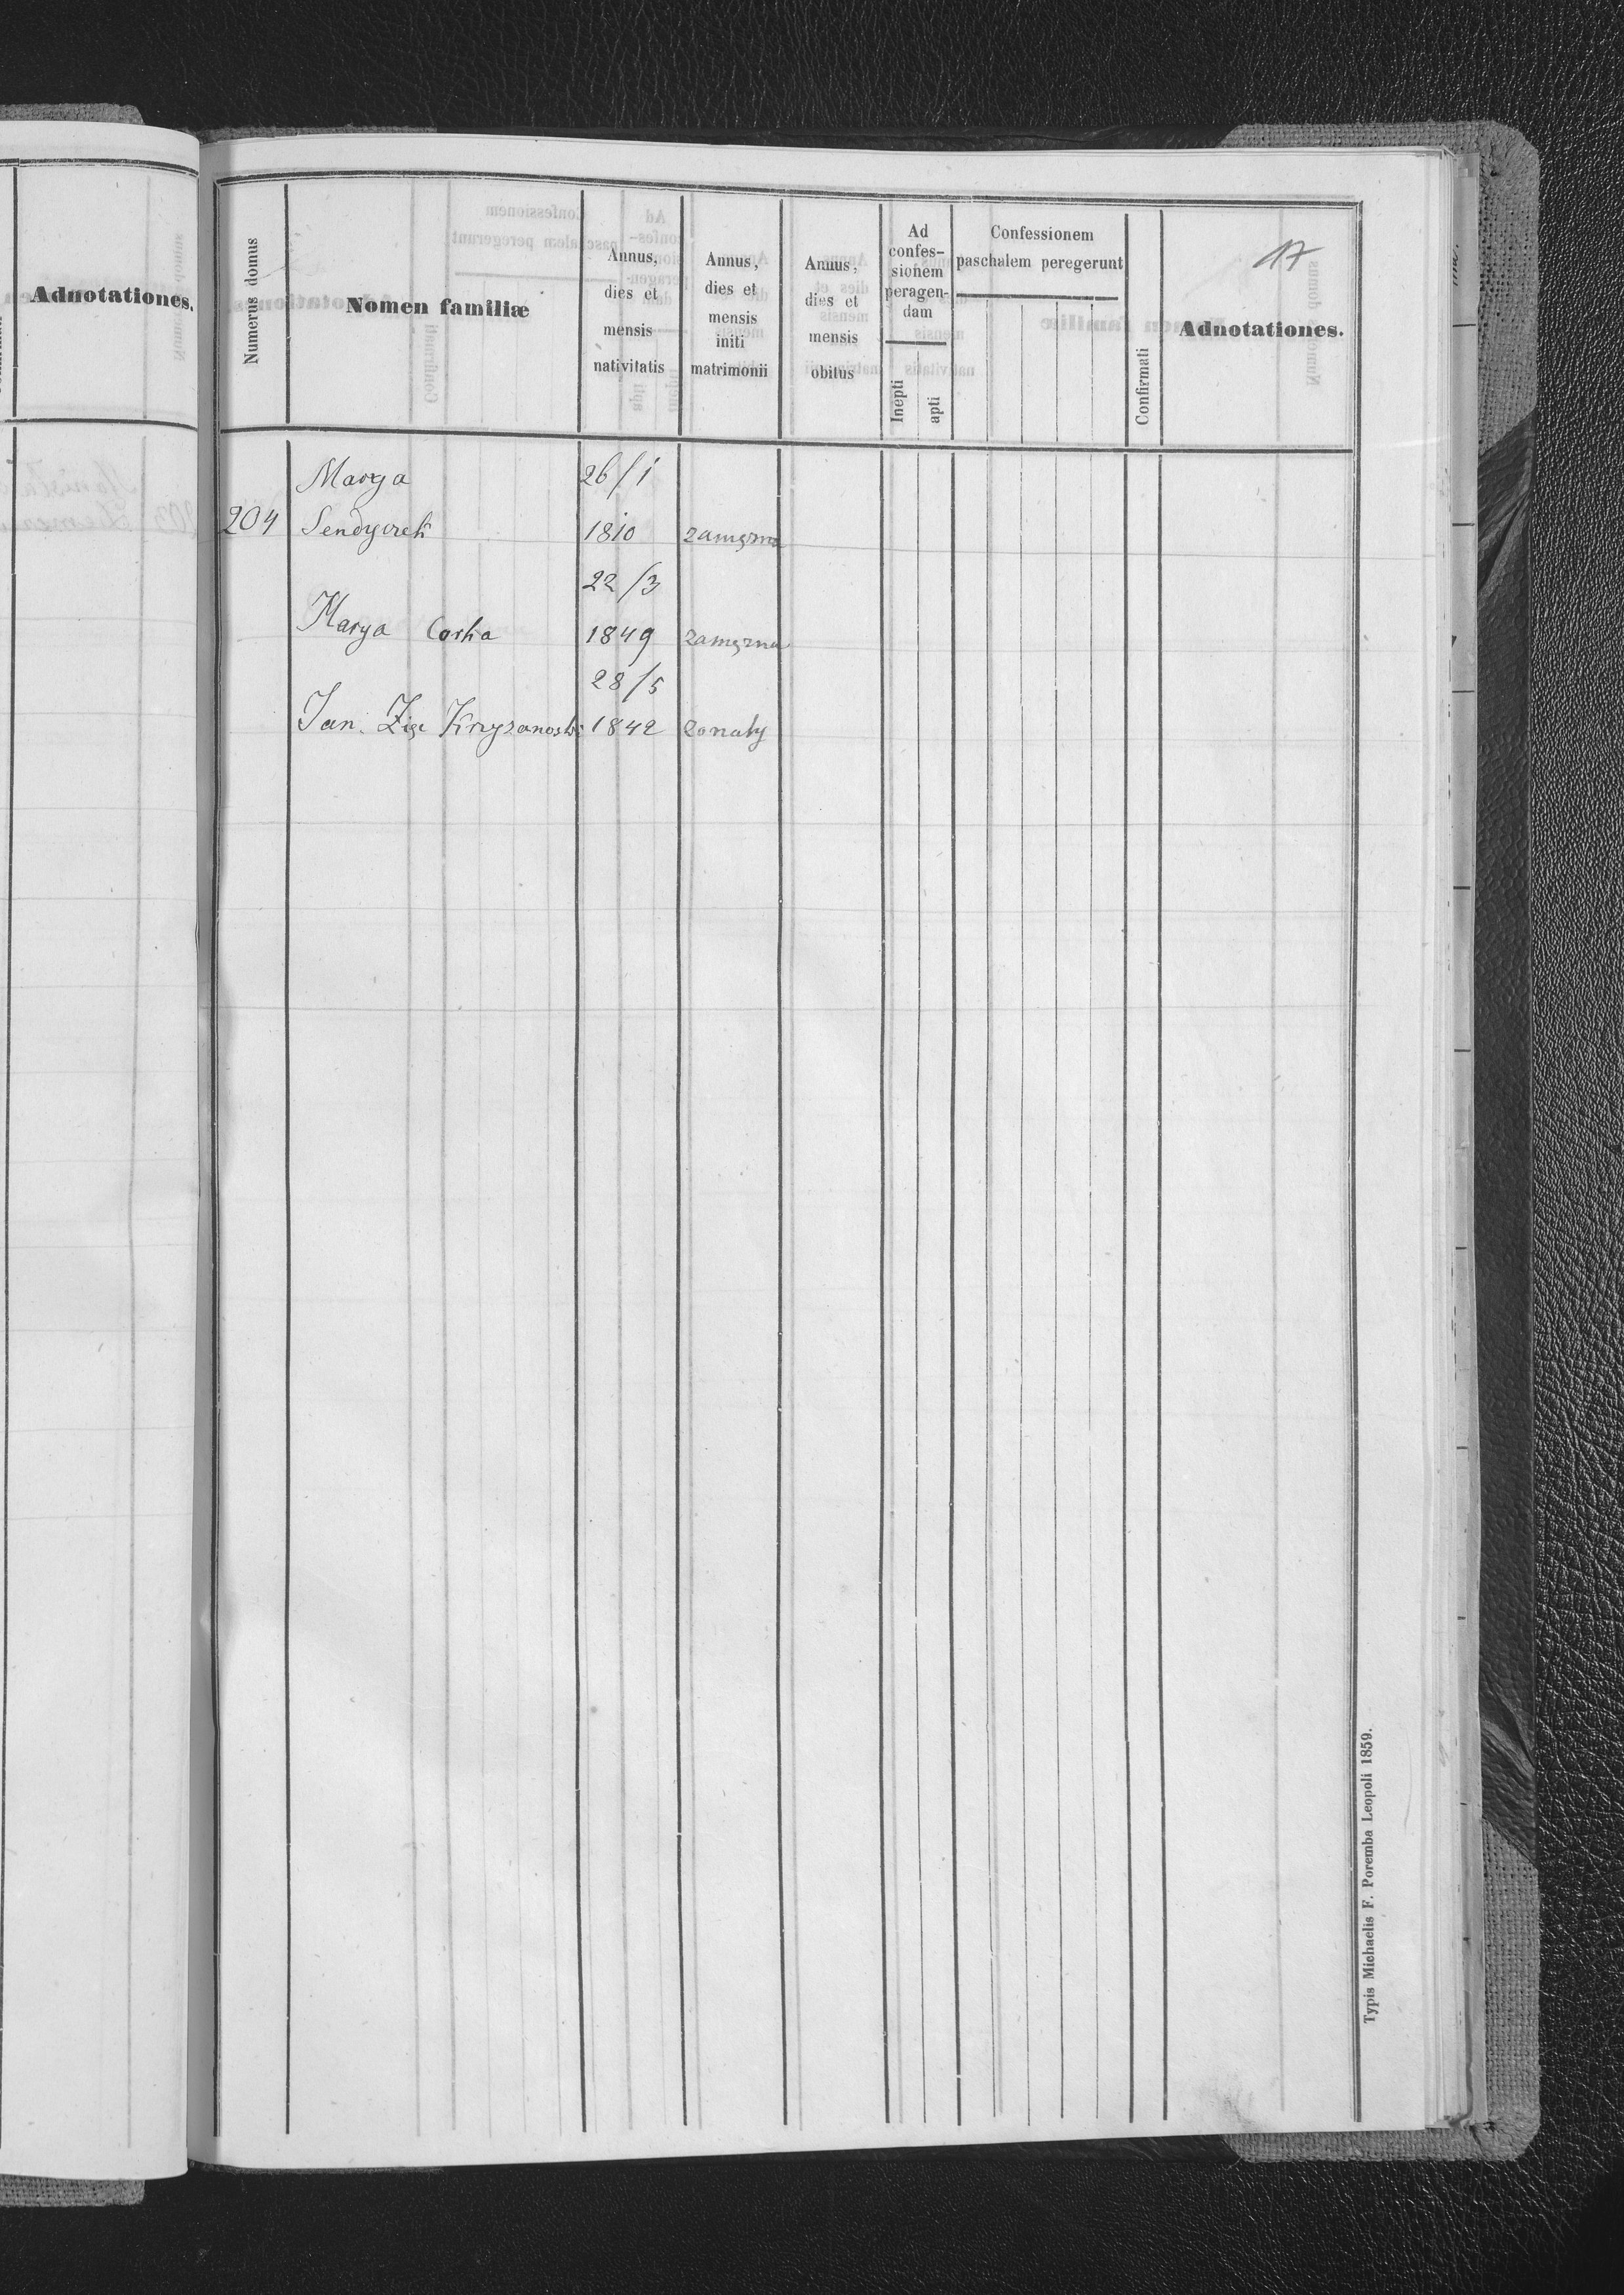 Adnotationes.
17
Numerus domus
Nomen familiæ
Annus, dies et mensis nativitatis
Annus, dies et mensis initi matrimonii
Annus, dies et mensis obitus
Ad confes-sionem peragen-dam
Inepti
apti
Confessionem paschalem peregerunt
Confirmati
Adnotationes.
Marya 26/1
204 1810 zamęzna
22/3
Marya Corka 1849 zamęzna
28/5
Jan 1842 zonaty
Typis Michaelis F. Poremba Leopoli 1859.